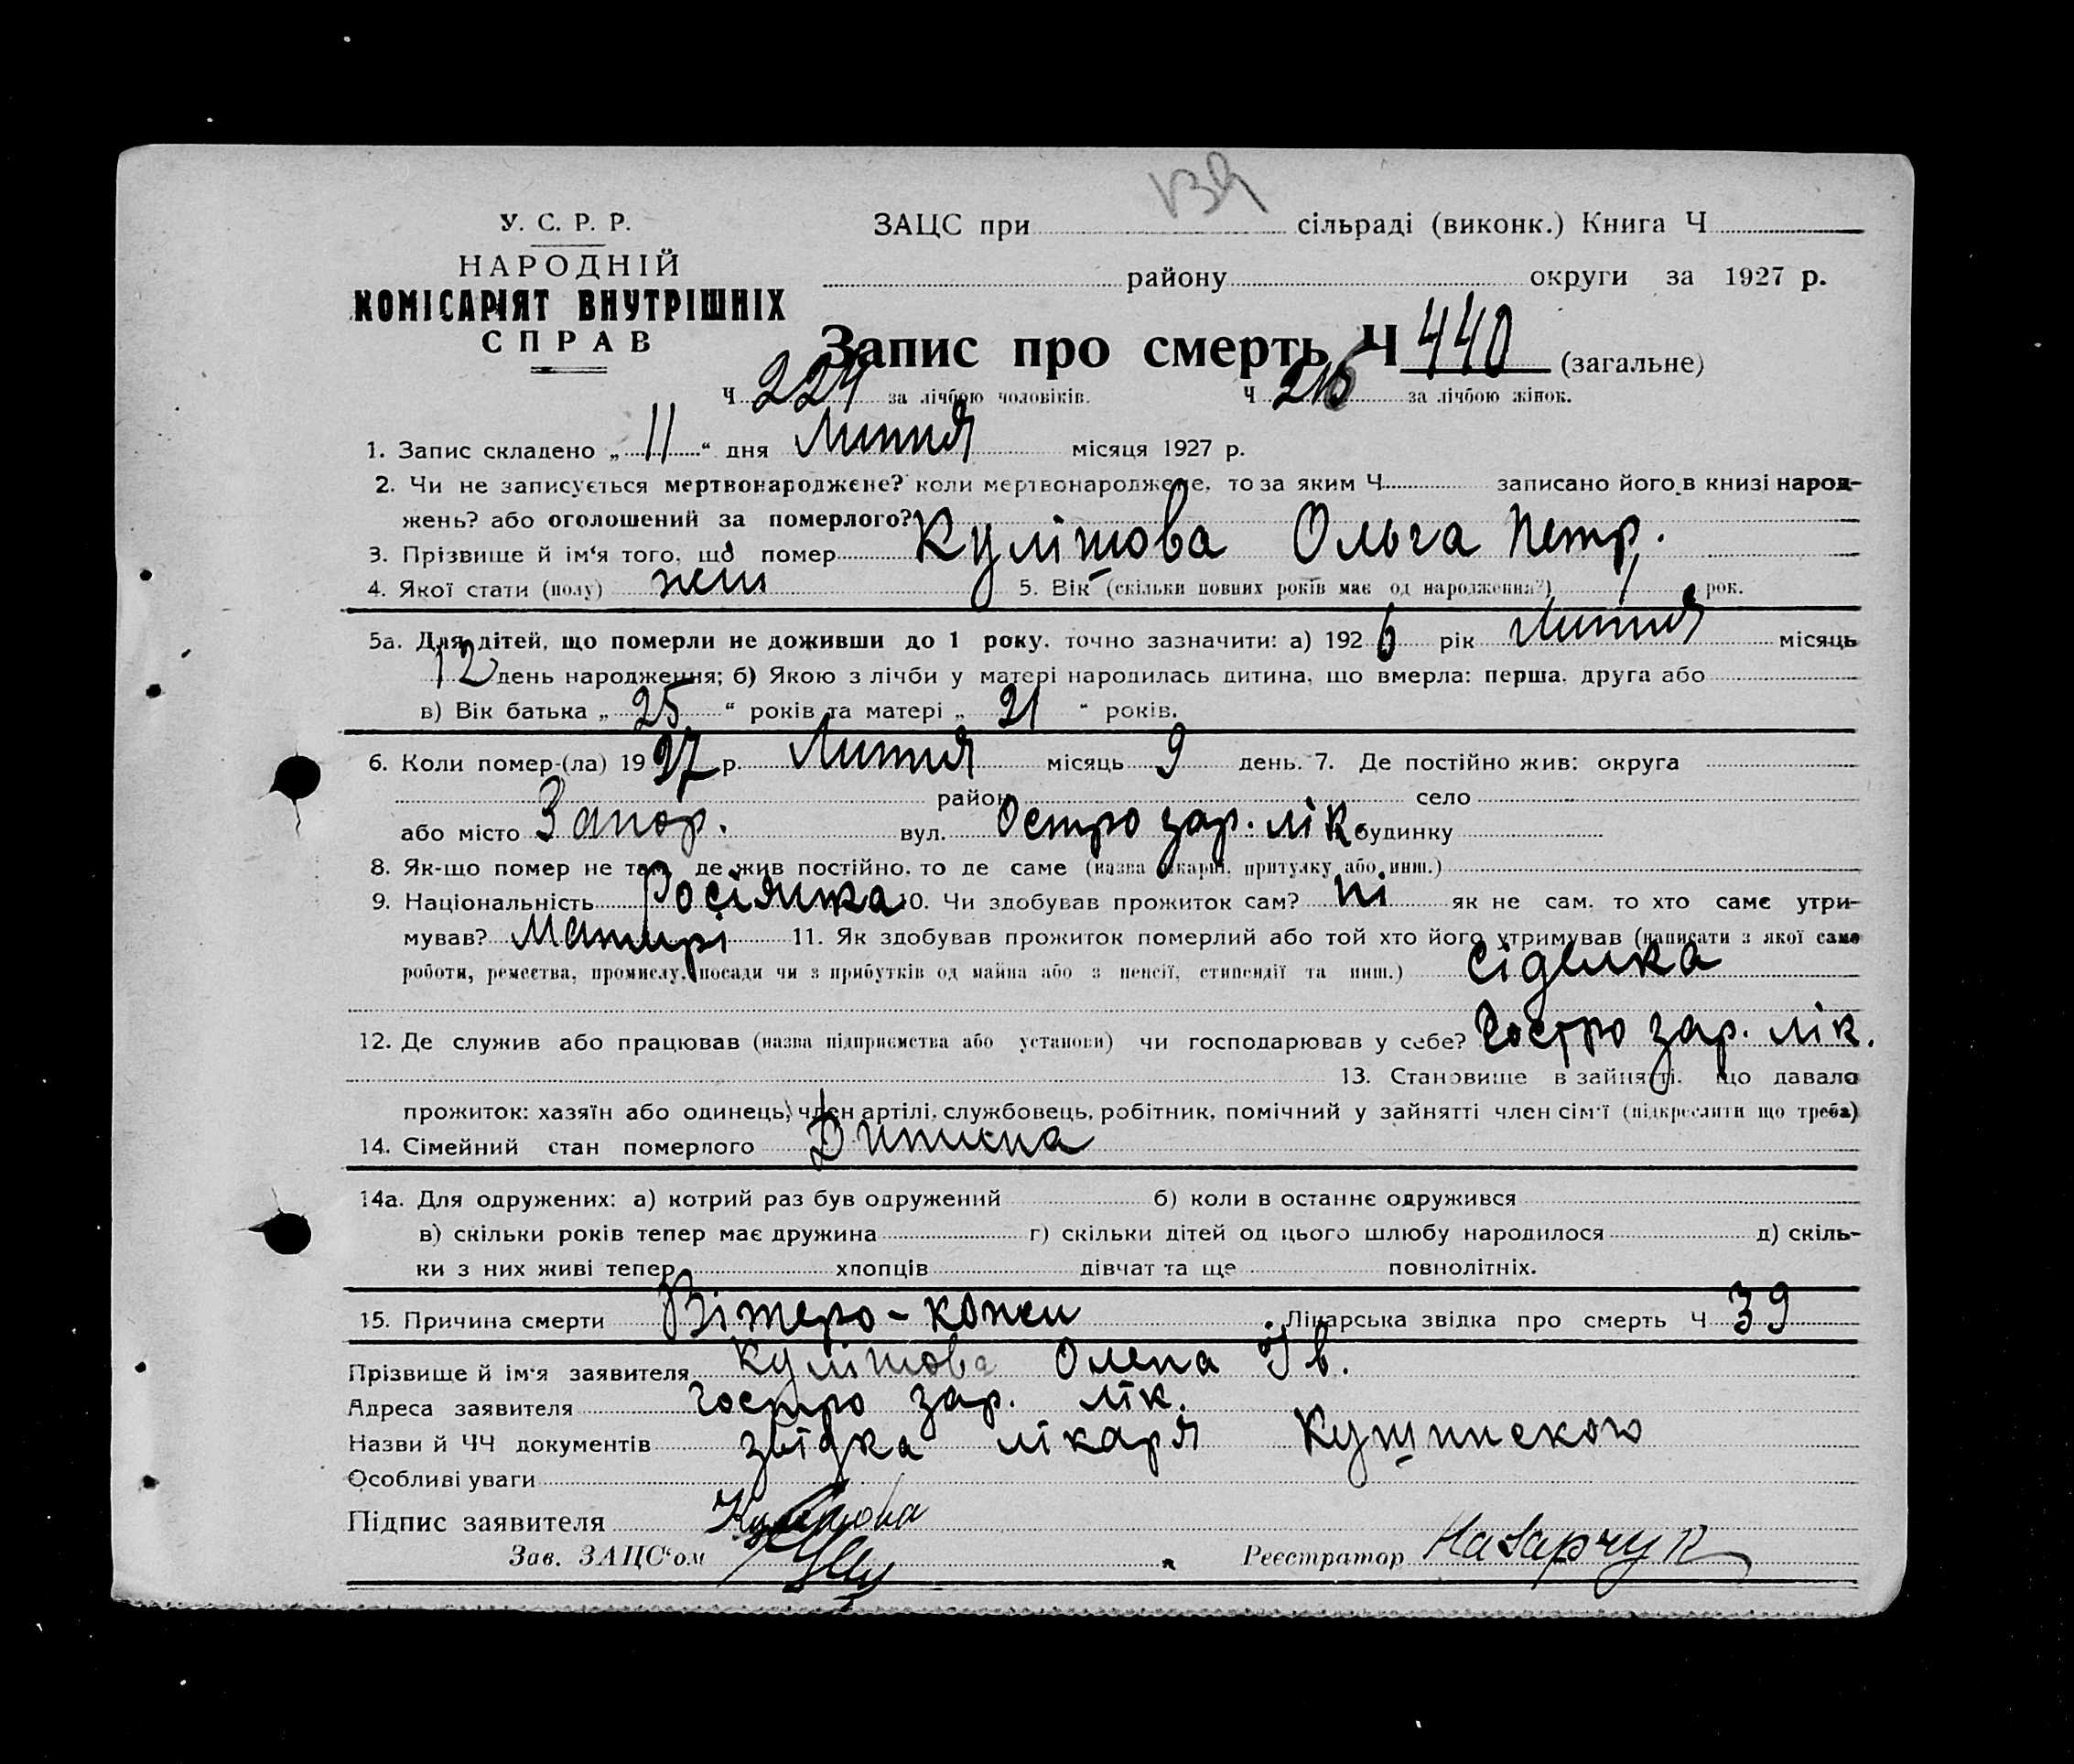 139
У. С. Р. Р.
НАРОДНІЙ
КОМІСАРІЯТ ВНУТРІШНІХ
СПРАВ
ЗАЦС при сільраді (виконк.) Книга Ч
району округи за 1927 р.
Запис про смерть Ч 440 (загальне)
Ч 224 за лічбою чоловіків. Ч 216 за лічбою жінок.
1. Запис складено „ 11 “ дня Липня місяця 1927 р.
2. Чи не записується мертвонароджене? коли мертвонароджене, то за яким Ч записано його в книзі народ-
жень? або оголошений за померлого?
3. Прізвище й ім'я того, що помер Кулішова Ольга Петр.
4. Якої стати (полу) жін 5. Вік (скільки повних років має од народження?) 1 рок.
5а. Для дітей, що померли не доживши до 1 року, точно зазначити: а) 1926 рік Липня місяць
12 день народження; б) Якою з лічби у матері народилась дитина, що вмерла: перша, друга або
в) Вік батька „ 25 “ років та матері „ 21 “ років.
6. Коли помер-(ла) 1927 р. Липня місяць 9 день. 7. Де постійно жив: округа
район село
або місто Запор. вул. Остро зар. лік. будинку
8. Як-що помер не там, де жив постійно, то де саме (назва лікарні, притулку або инш.)
9. Національність Росіянка 10. Чи здобував прожиток сам? ні як не сам, то хто саме утри-
мував? Матирі 11. Як здобував прожиток померлий або той хто його утримував (написати з якої саме
роботи, ремества, промислу, посади чи з прибутків од майна або з пенсії, стипендії та инш.) сіделка
12. Де служив або працював (назва підприємства або установи) чи господарював у себе? Гостро зар. лік.
13. Становище в зайнятті, що давало
прожиток: хазяїн або одинець, член артілі, службовець, робітник, помічний у зайнятті член сім'ї (підкреслити що треба)
14. Сімейний стан померлого Дитина
14а. Для одружених: а) котрий раз був одружений б) коли в останнє одружився
в) скільки років тепер має дружина г) скільки дітей од цього шлюбу народилося д) скіль-
ки з них живі тепер хлопців дівчат та ще повнолітніх.
15. Причина смерти Лікарська звідка про смерть Ч 39
Прізвище й ім'я заявителя Кулішова Олена Ів.
Адреса заявителя Гостро зар. лік.
Назви й ЧЧ документів звідка лікаря Кушинского
Особливі уваги
Підпис заявителя Кулішова
Зав. ЗАЦС'ом Реєстратор Назарчук